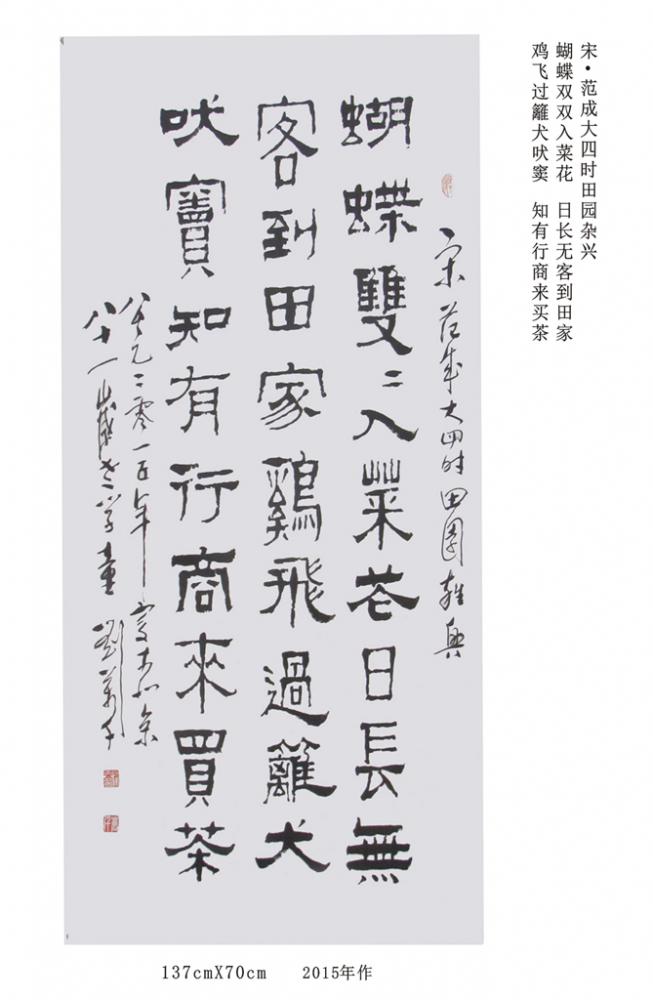 宋·范成大四时田园杂兴
蝴蝶双双入菜花 日长无客到田家
鸡飞过籬犬吠窦 知有行商来买茶
宋范成大四时田園雜興
蝴蝶雙〻入菜花日長無
客到田家鷄飛過籬犬
吠竇知有行商來買茶
公元二零一五年
八十一歲老学童劉
137cmX70cm 2015年作